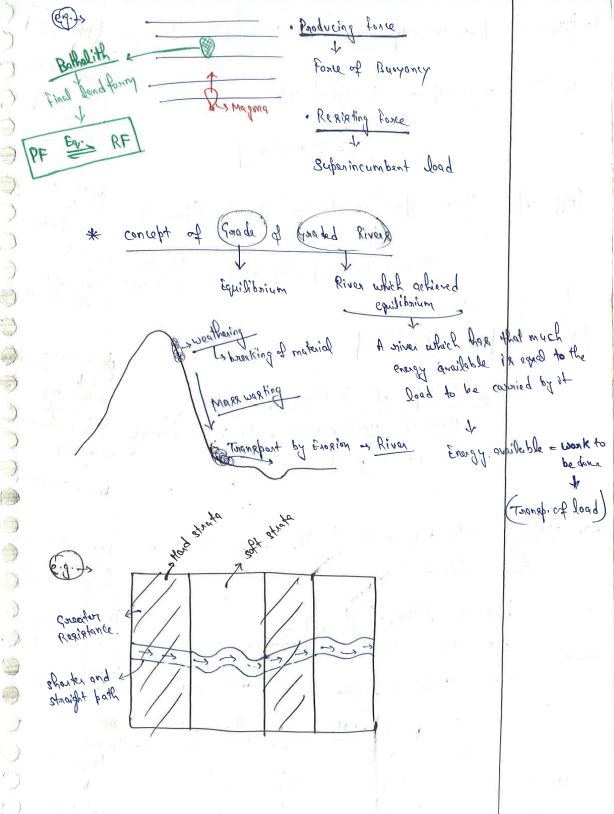 e.g.
• Producing force
Force of Buoyancy
Batholith
Final Landform
PF Eq. RF
Magma
• Resisting force
Superincumbent load
* concept of Grade of Graded Rivers
Equilibrium
River which achieved
equilibrium
weathering
breaking of material
A river which has that much
energy available is equal to the
load to be carried by it
Mass wasting
Transport by Erosion → River
Energy available = work to
be done
(Transp. of load)
e.g.
Hard strata
soft strata
Greater
Resistance
shorter and
straight path